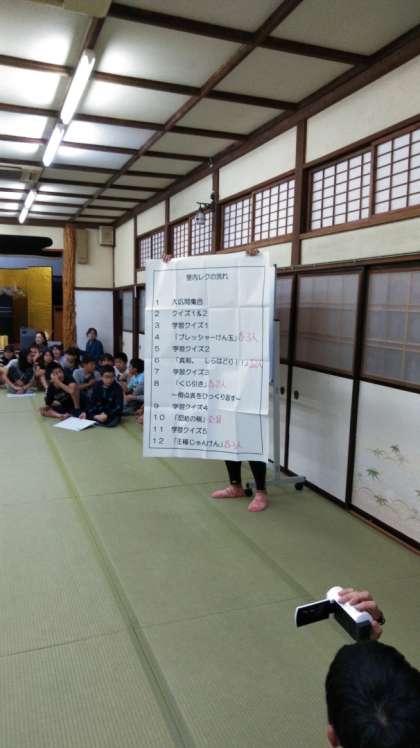 室内レクの流れ
1 大広間集合
2 クイズ1&2
3 学習クイズ1
4 「プレッシャーけん玉」各3人
5 学習クイズ2
6 「真剣、しらはどり!」
7 学習クイズ3
8 「くじ引き」各2人
～得点表をひっくり返す～
9 学習クイズ4
10 「恐怖の桶」全員
11 学習クイズ5
12 「王様じゃんけん」各1人